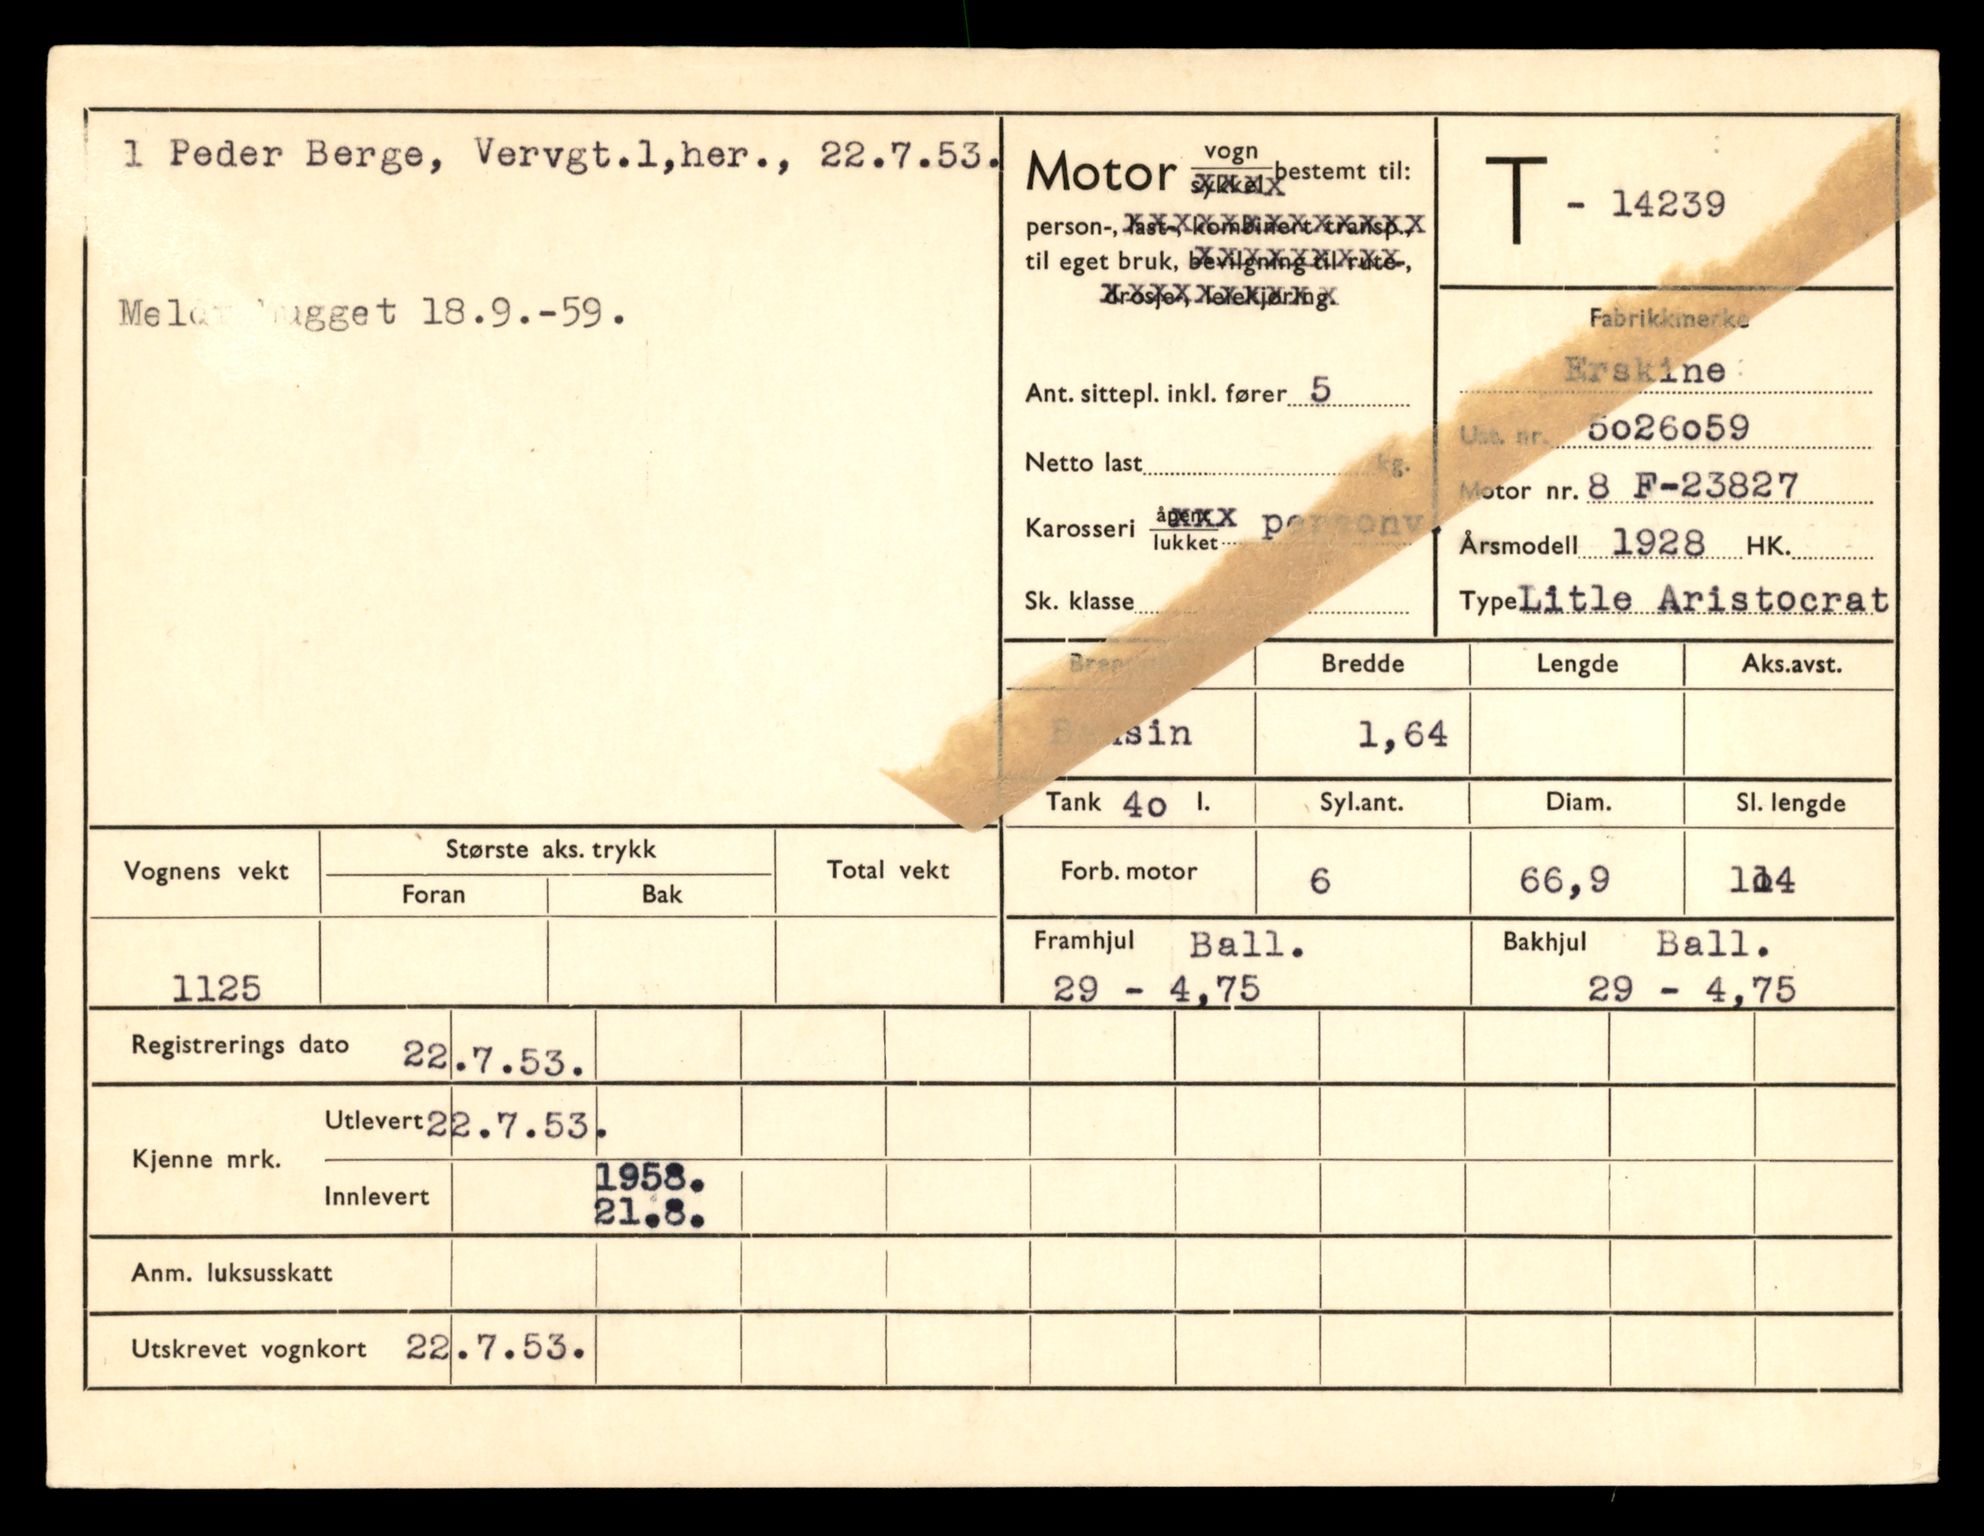 1 Peder Berge, Vervgt.1,her., 22.7.53.
Meldt hugget 18.9.-59.
Motor vogn bestemt til:
sykkel
person-, last-, kombinert transp.,
til eget bruk, bevilgning til rute-,
drosje-, leiekjøring.
Ant. sittepl. inkl. fører 5
Netto last kg.
Karosseri åpent personv.
lukket
Sk. klasse
T - 14239
Fabrikkmerke
Erskine
Und. nr. 5o26o59
Motor nr. 8 F-23827
Årsmodell 1928 HK.
Type Litle Aristocrat
Bredde Lengde Aks.avst.
Bensin 1,64
Tank 4o l. Syl.ant. Diam. Sl. lengde
Forb. motor 6 66,9 114
Vognens vekt Største aks. trykk Total vekt
Foran Bak
1125
Framhjul Ball. Bakhjul Ball.
29 - 4,75 29 - 4,75
Registrerings dato 22.7.53.
Kjenne mrk. Utlevert 22.7.53.
Innlevert 1958.
21.8.
Anm. luksusskatt
Utskrevet vognkort 22.7.53.